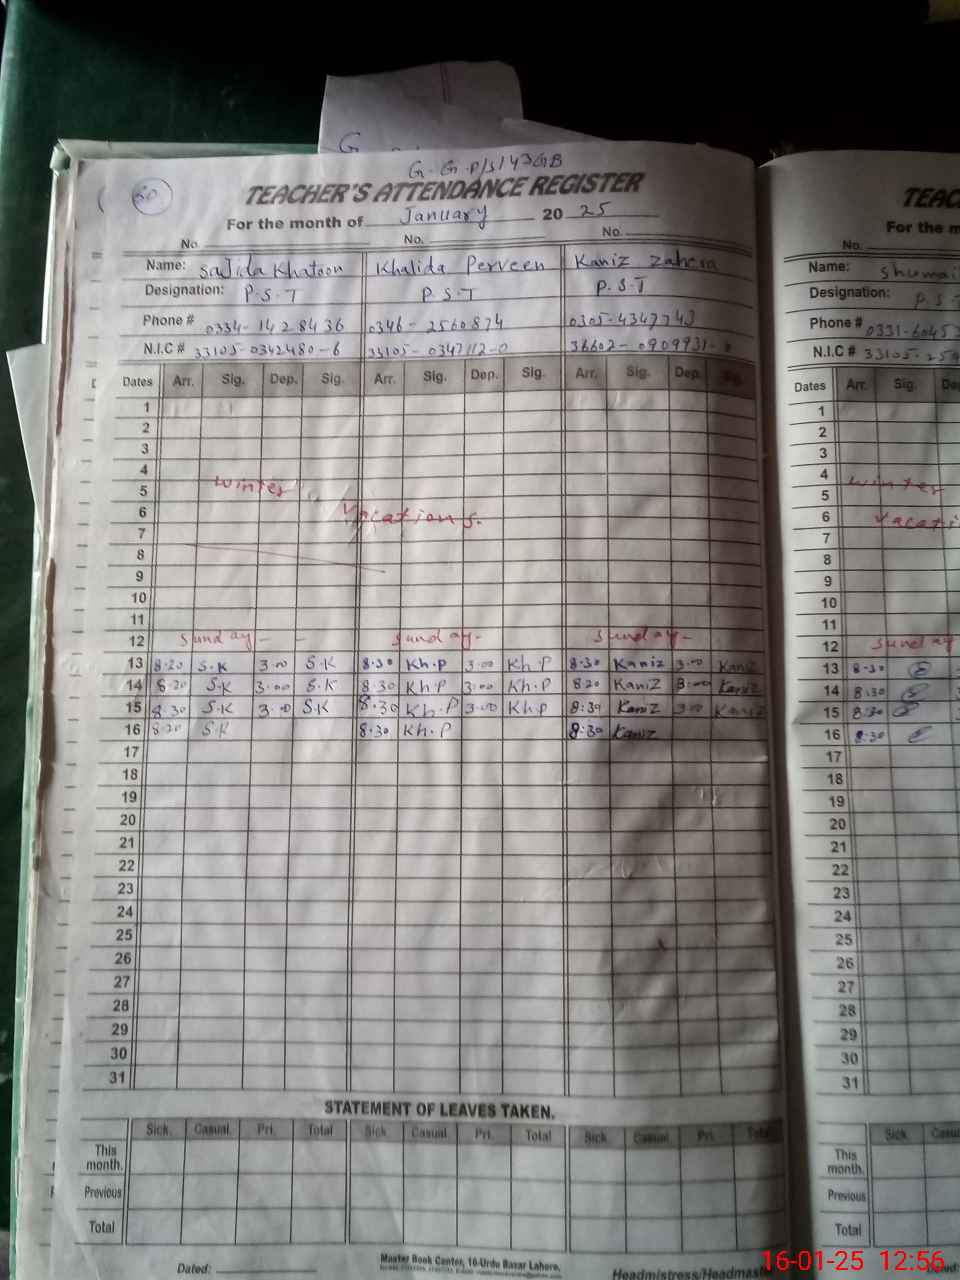 G.G.P/S/143GB
60
TEACHER'S ATTENDANCE REGISTER
For the month of January 2025
No. No. No.
Name: Sajida Khatoon Khalida Perveen Kaniz Zahera
Designation: P.S.T P.S.T P.S.T
Phone # 0334-1428436 0346-2560874 0305-4347743
N.I.C # 33105-0342480-6 33105-0347112-0 36602-0909931-
Dates Arr. Sig. Dep. Sig. Arr. Sig. Dep. Sig. Arr. Sig. Dep. Sig.
1
2
3
4
5 Winter
6 Vacations.
7
8
9
10
11
12 Sunday - - Sunday- Sunday-
13 8.20 S.K 3.00 S.K 8.30 Kh.P 3.00 Kh.P 8.30 Kaniz 3.00 Kaniz
14 8.20 S.K 3.00 S.K 8.30 Kh.P 3.00 Kh.P 8.20 Kaniz 3.00 Kaniz
15 8.30 S.K 3.00 S.K 8.30 Kh.P 3.00 Kh.P 8:30 Kaniz 3.00 Kaniz
16 8.20 S.K 8.30 Kh.P 8.30 Kaniz
17
18
19
20
21
22
23
24
25
26
27
28
29
30
31
STATEMENT OF LEAVES TAKEN.
Sick. Casual. Pri. Total Sick Casual Pri. Total Sick. Casual. Pri. Total
This month.
Previous
Total
Dated:
Master Book Center, 10-Urdu Bazar Lahore.
Headmistress/Headmaste
TEAC
For the m
No.
Name: Shumai
Designation: P.S.T
Phone # 0331-6045
N.I.C # 33105-259
Dates Arr. Sig. De
1
2
3
4 Winter
5
6 Vacati
7
8
9
10
11
12 Sunday
13 8.30
14 8.30
15 8.30
16 8.30
17
18
19
20
21
22
23
24
25
26
27
28
29
30
31
Sick Casu
This month.
Previous
Total
16-01-25 12:56